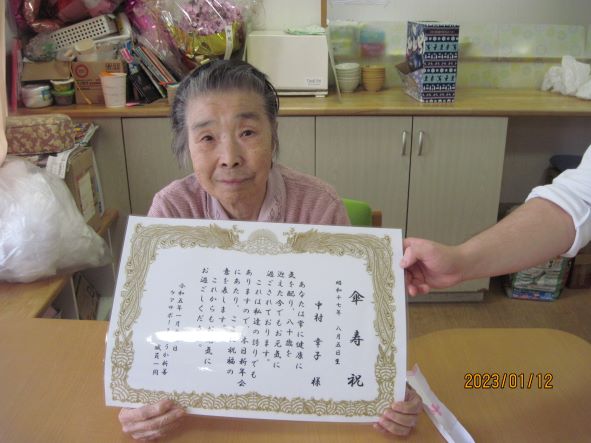 傘寿祝
昭和十七年 八月五日生
中村 幸子 様
あなたは常に健康に
気を配り、八十歳を
迎えた今でもお元気に
過ごされております。
これは私達の誇りでも
ありますので、本日新年会
にあたり、ここに祝福の
意を表します。
これからもお元気に
お過ごしください。
令和五年一月
職員一同
2023/01/12